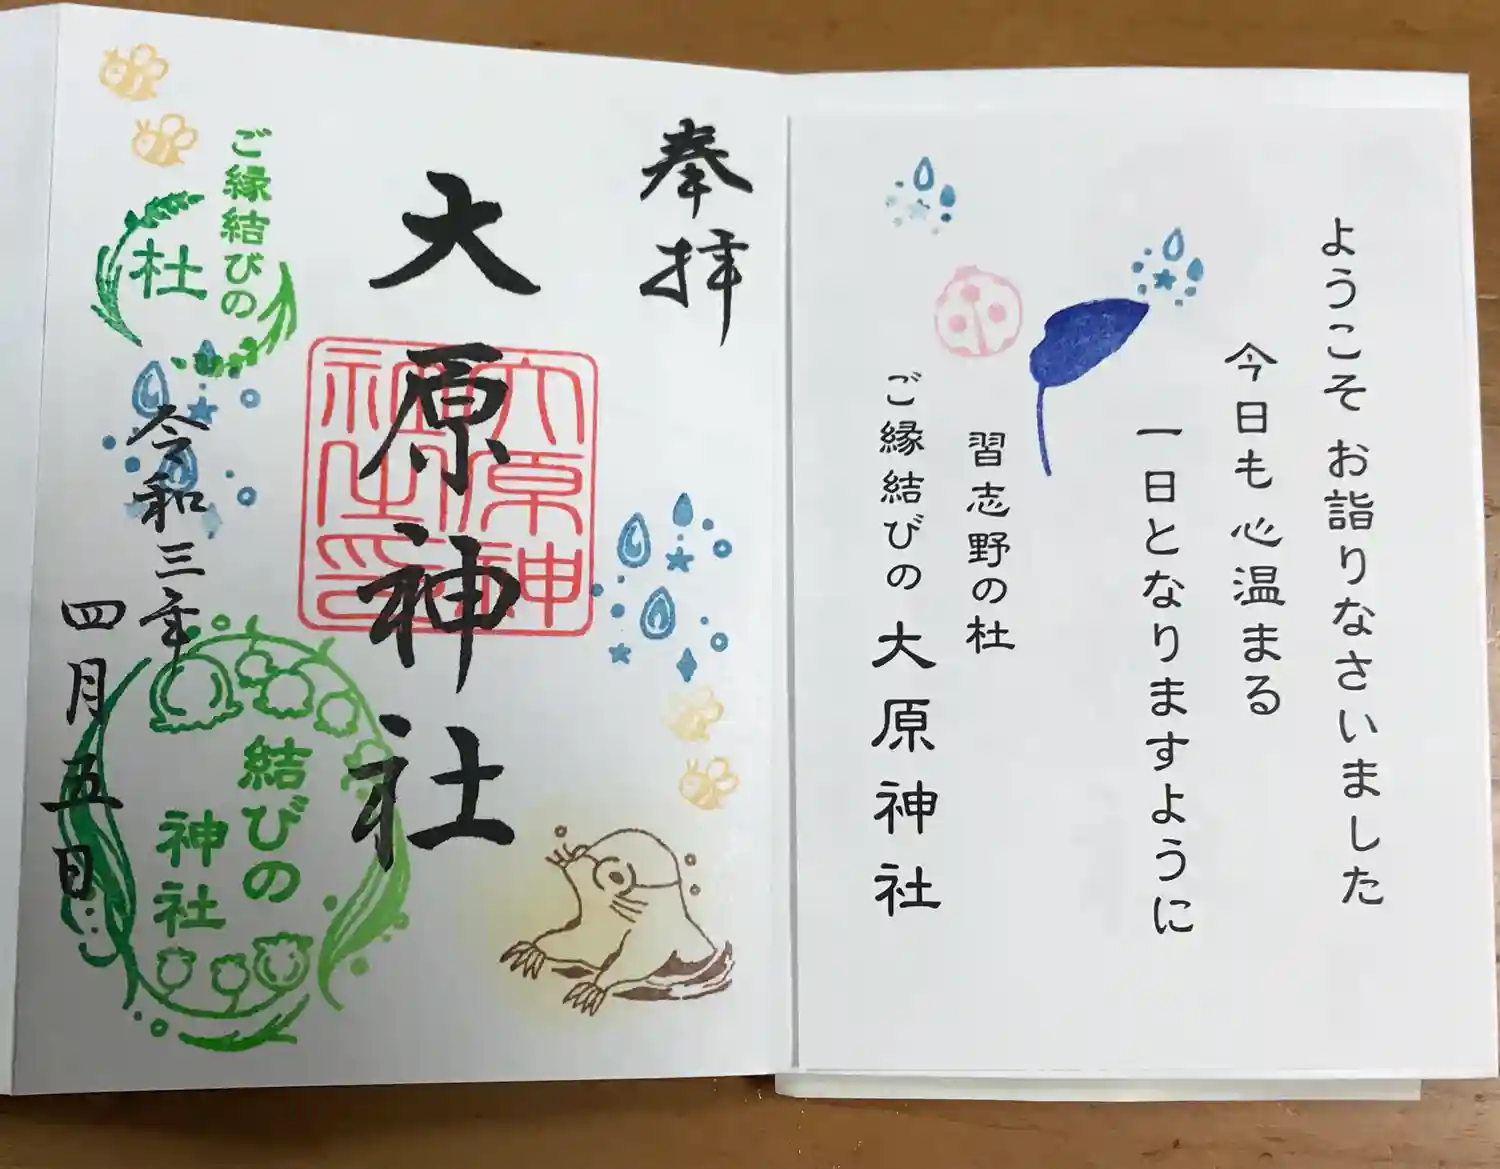 ようこそ お詣りなさいました
今日も 心温まる
一日となりますように
習志野の杜
ご縁結びの 大原神社
奉拝
大原神社
大原神
社印
ご縁結びの
杜
令和三年
四月五日
結びの
神社